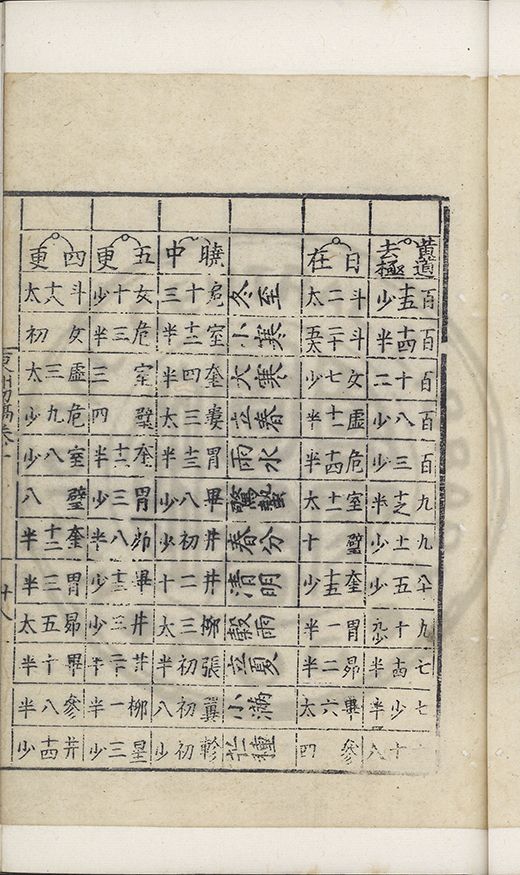 黃道去極 日在 曉中 五更 四更
百十五少 斗二太 冬至 危十三 女十少 斗十六太
百十四半 斗二十五太 小寒 室十二半 危三半 女初
百十二 女七少 大寒 奎四半 室三 虛三太
百八少 虛十一半 立春 婁三太 壁四 危九少
百三少 危十四半 雨水 胃十三半 奎十二半 室八少
九十七半 室十一太 驚蟄 畢八少 胃三少 壁八
九十一少 壁十 春分 井初少 昴八半 奎十二半
八十五少 奎十五少 清明 井十二 畢十三少 胃三半
九十少 胃一半 穀雨 三太 井三少 昴五太
七十四半 昴二半 立夏 張初半 井二十半 畢十半
七少半 畢六太 小滿 翼初八 柳一半 參八半
十八 參四 芒種 軫初少 星三少 井十四少